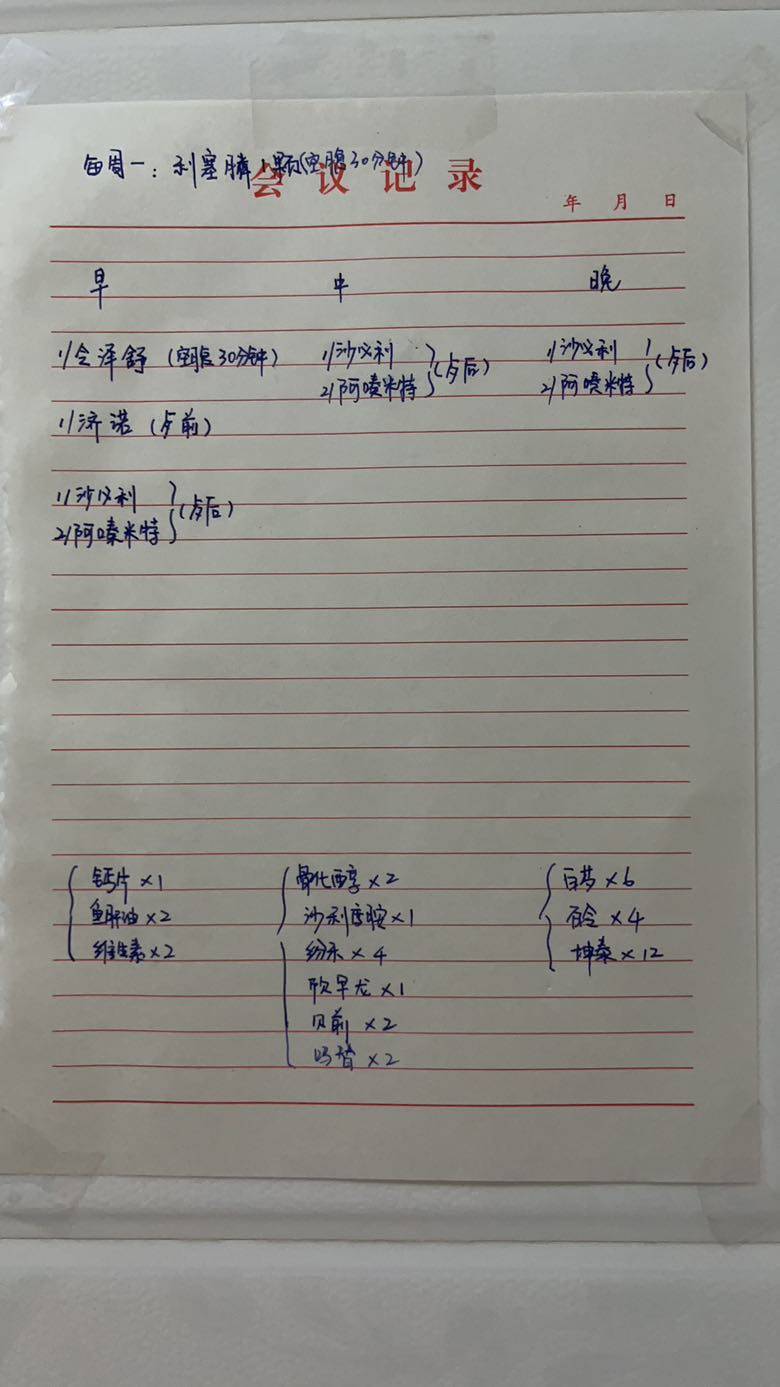 每周一：利塞膦1颗(空腹30分钟)
会议记录
年 月 日
早 中 晚
1)令泽舒（空腹30分钟） 1)沙必利 2)阿嗪米特 (后) 1)沙必利 2)阿嗪米特 (后)
1)济诺（前）
1)沙必利
2)阿嗪米特 (后)
钙片×1 骨化醇×2 白芍×6
鱼肝油×2 沙利度胺×1 ×4
维生素×2 纷乐×4 坤泰×12
×1
贝前×2
吗替×2